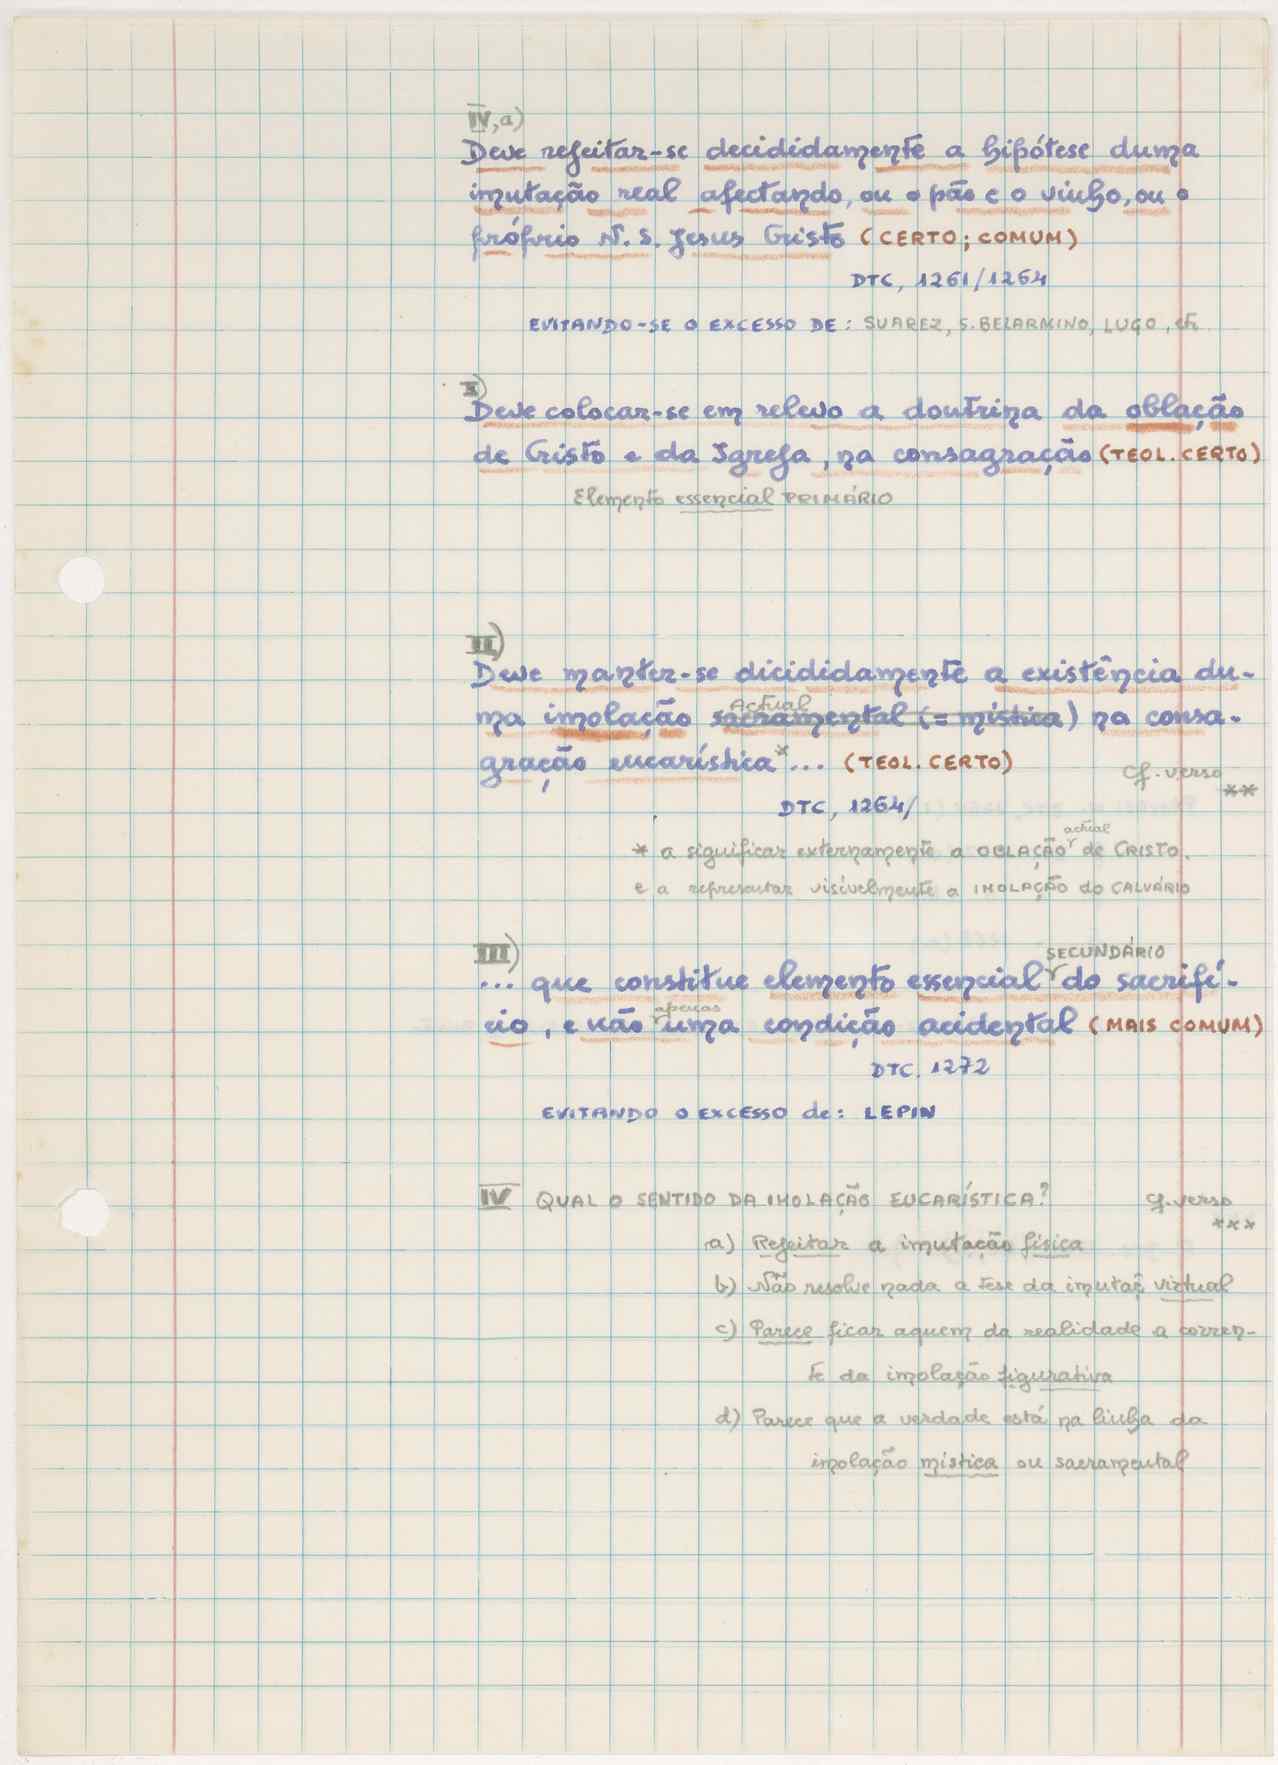 IV, a)
Deve rejeitar-se decididamente a hipótese duma
imutação real afectando, ou o pão e o vinho, ou o
próprio N. S. Jesus Cristo (CERTO; COMUM)
DTC, 1261/1264
EVITANDO-SE O EXCESSO DE: SUAREZ, S. BELARMINO, LUGO,
I)
Deve colocar-se em relevo a doutrina da oblação
de Cristo e da Igreja, na consagração (TEOL. CERTO)
Elemento essencial PRIMÁRIO
II)
Deve manter-se dicididamente a existência du-
Actual
ma imolação sacramental (= mística) na consa-
gração eucarística*... (TEOL. CERTO)
cf. verso
**
DTC, 1264/
actual
* a significar externamente a OBLAÇÃO de CRISTO,
e a representar visívelmente a IMOLAÇÃO do CALVÁRIO
III)
SECUNDÁRIO
... que constitue elemento essencial do sacrifí-
apenas
cio, e não uma condição acidental (MAIS COMUM)
DTC. 1272
EVITANDO O EXCESSO de: LEPIN
IV QUAL O SENTIDO DA IMOLAÇÃO EUCARÍSTICA? cf. verso
***
a) Rejeitar a imutação física
b) Não resolve nada a tese da imutaç̃ virtual
c) Parece ficar aquem da realidade a corren-
te da imolação figurativa
d) Parece que a verdade está na linha da
imolação mística ou sacramental